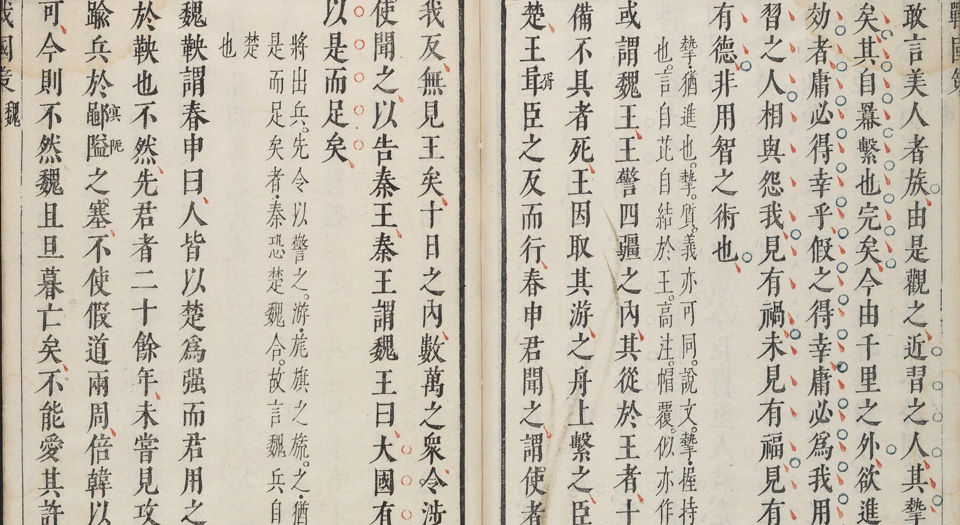 戰國策
敢言美人者族由是觀之近習之人其摯
矣其自羃繫也完矣今由千里之外欲進
効者庸必得幸乎假之得幸庸必爲我用
習之人相與怨我見有禍未見有福見有
有德非用智之術也
摯猶進也摯質義亦可同說文摯握持
也言自芘自結於王高注帽覆似亦作
或謂魏王王警四疆之內其從於王者十
備不具者死王因取其游之舟上繫之臣
楚王胥臣之反而行春申君聞之謂使者
我反無見王矣十日之內數萬之衆今涉
使聞之以告秦王秦王謂魏王曰大國有
以是而足矣
將出兵先令以警之游旄旗之旒之猶
是而足矣者秦恐楚魏合故言魏兵自
楚
也
魏鞅謂春申曰人皆以楚爲强而君用之
於鞅也不然先君者二十餘年未嘗見攻
踰兵於鄳隘之塞不使假道兩周倍韓以
冥阨
可今則不然魏且旦暮亡矣不能愛其許
戰國策 魏